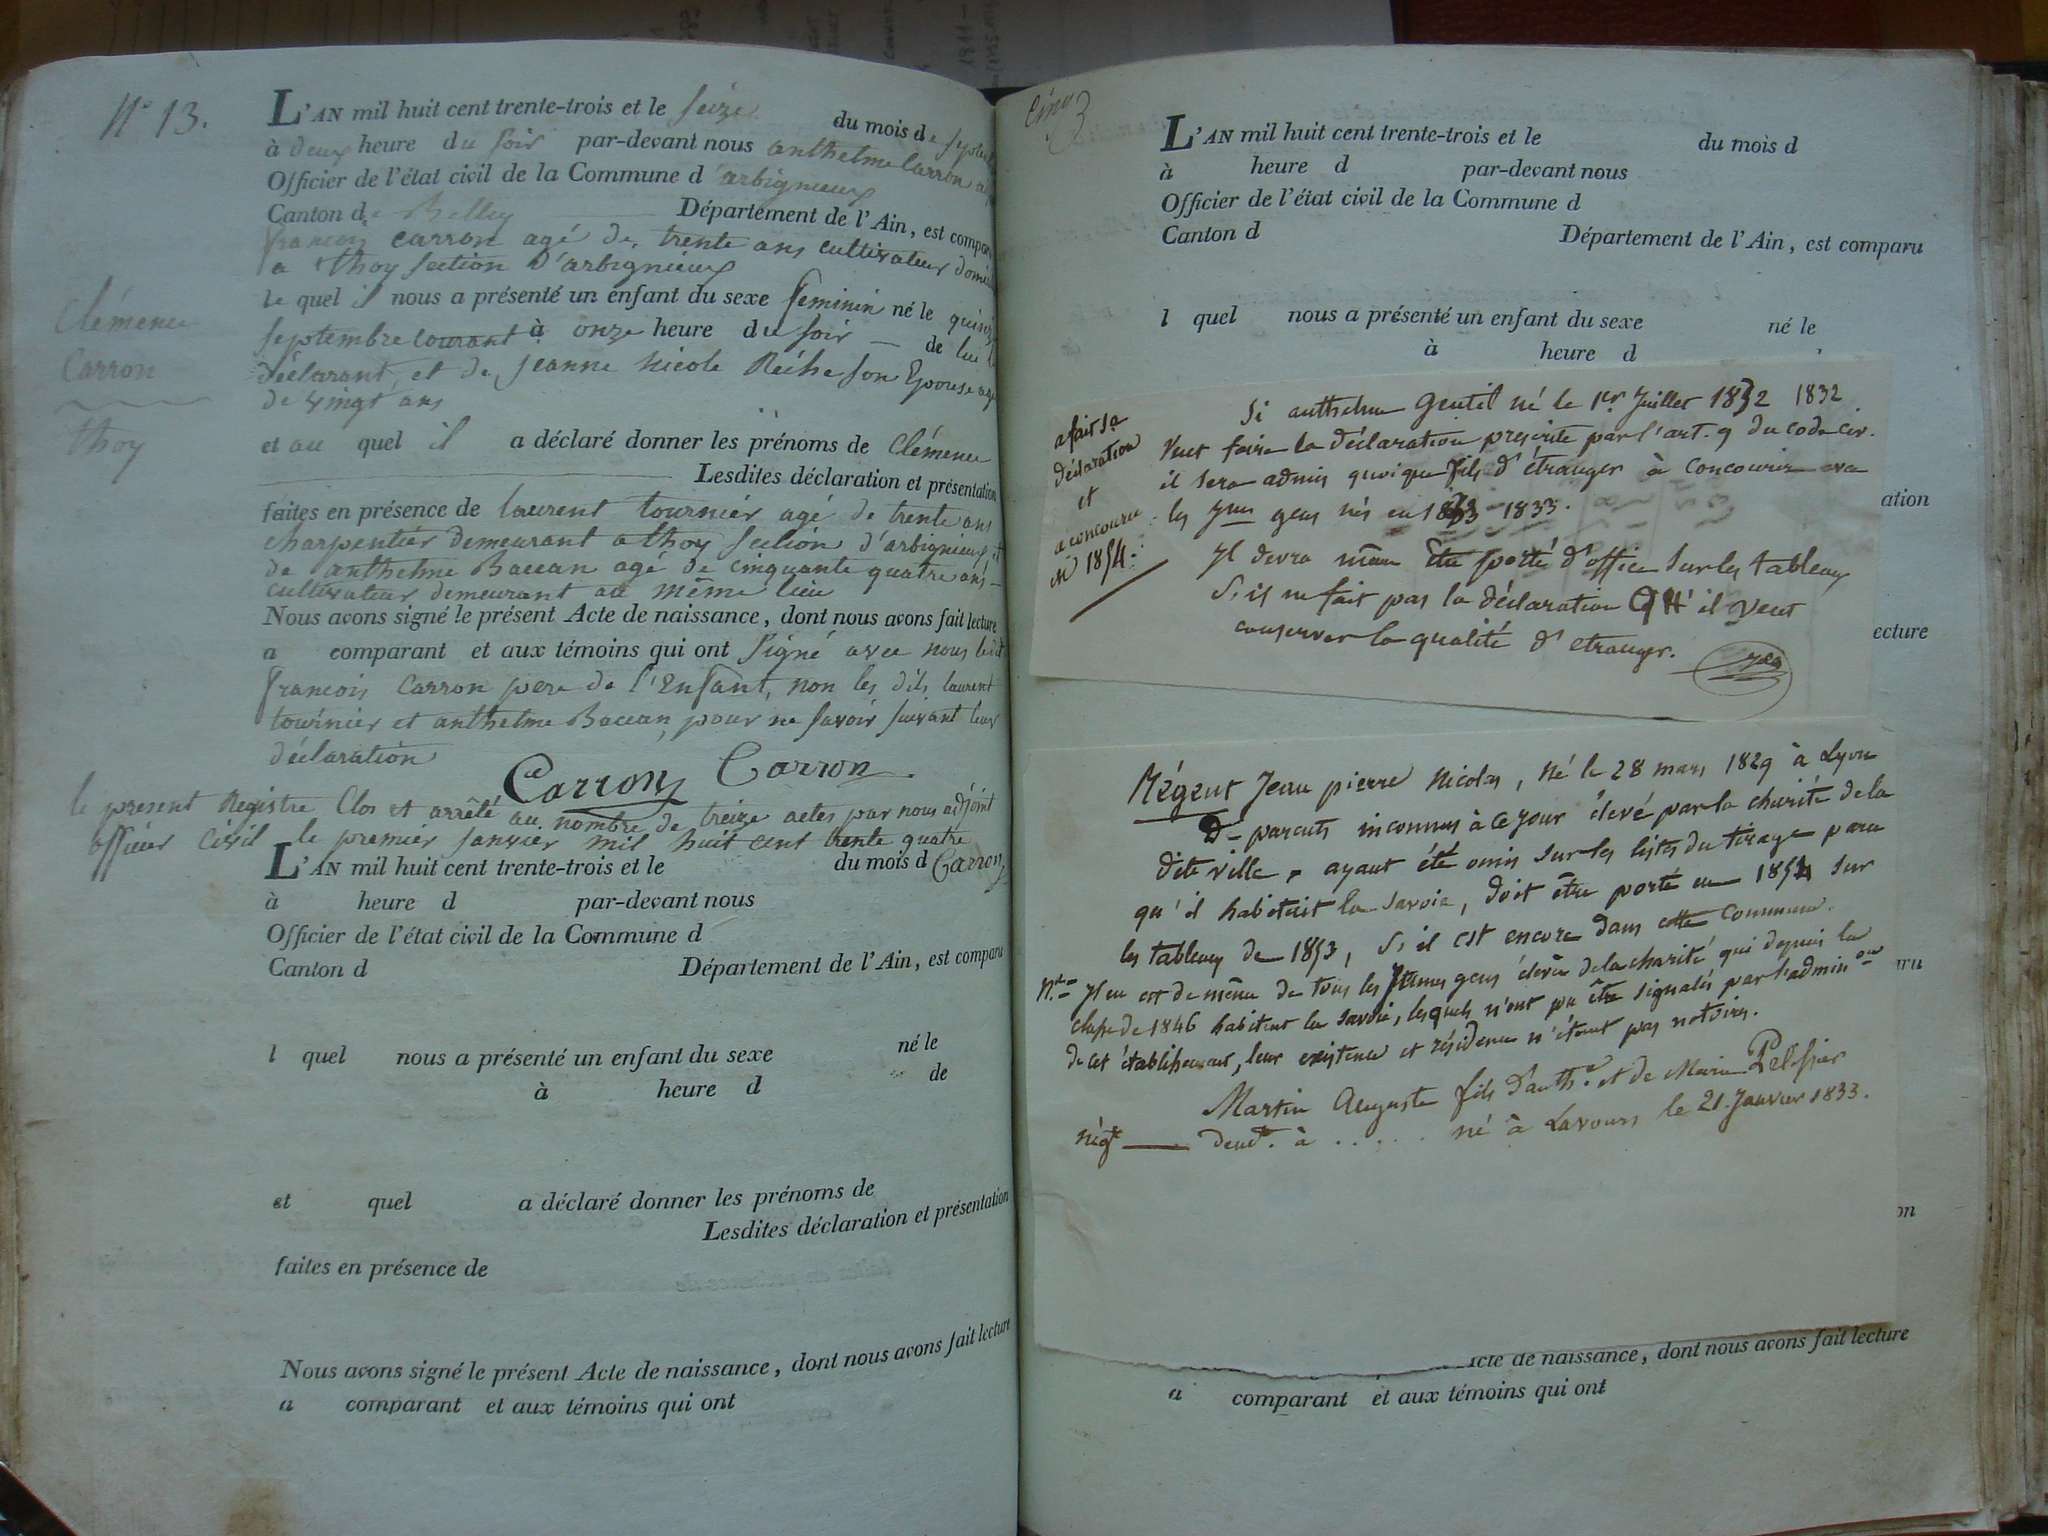 N° 13.
L'AN mil huit cent trente-trois et le seize du mois de
à deux heure du soir par-devant nous anthelme Carron
Officier de l'état civil de la Commune d'arbignieux
Canton de Belley Département de l'Ain, est compar
francois carron agé de trente ans cultivateur domi
a thoy section D'arbignieux
le quel il nous a présenté un enfant du sexe feminin né le quinze
septembre courant à onze heure du soir de lui
déclarant, et de jeanne nicole son Epouse agé
de vingt ans
et au quel il a déclaré donner les prénoms de Clémence
Lesdites déclaration et présentation
faites en présence de laurent tournier agé de trente ans
charpentier demeurant a thoy section d'arbignieux et
de anthelme Baccan agé de cinquante quatre ans
cultivateur demeurant au même lieu
Nous avons signé le présent Acte de naissance, dont nous avons fait lecture
a comparant et aux témoins qui ont signé avec nous ledit
francois Carron pere de l'Enfant, non les dits laurent
tournier et anthelme Baccan, pour ne savoir suivant leur
déclaration
Clémence
Carron
thoy
Carron Carron
le present Registre Clos et arrêté au nombre de treize actes par nous adjoint
officier Civil le premier janvier mil huit cent trente quatre
Carron
L'AN mil huit cent trente-trois et le du mois d
à heure d par-devant nous
Officier de l'état civil de la Commune d
Canton d Département de l'Ain, est comparu
l quel nous a présenté un enfant du sexe né le
à heure d de
et quel a déclaré donner les prénoms de
Lesdites déclaration et présentation
faites en présence de
Nous avons signé le présent Acte de naissance, dont nous avons fait lecture
a comparant et aux témoins qui ont
L'AN mil huit cent trente-trois et le du mois d
à heure d par-devant nous
Officier de l'état civil de la Commune d
Canton d Département de l'Ain, est comparu
l quel nous a présenté un enfant du sexe né le
à heure d
ation
ecture
a fait sa
déclaration
et
a concouru
en 1854.
Si anthelme Gentil né le 1er Juillet 1832 1832
veut faire la déclaration prescrite par l'art. 9 du code civ.
il sera admis quoique fils d'étranger à concourir avec
les jnes gens nés en 1833 1833.
Il devra même être porté d'office sur les tableaux
s'il ne fait pas la déclaration qu'il veut
conserver la qualité d'etranger.
Mégent Jean pierre Nicolas, né le 28 mars 1829 à Lyon
De parents inconnus à ce jour élevé par la charité de la
dite ville, ayant été omis sur les listes du tirage parce
qu'il habitait la Savoie, doit être porté en 1854 sur
les tableaux de 1853, s'il est encore dans cette commune.
Nta Il en est de même de tous les jeunes gens élevés de la charité qui depuis la
classe de 1846 habitent la Savoie, lesquels n'ont pu être signalés par l'adminon
de cet établissement, leur existence et résidence n'étant pas notoires.
Martin Auguste fils d'anthe et de Marie Pelissier
négt demt à ..... né à Lavours le 21 Janvier 1833.
ru
on
Acte de naissance, dont nous avons fait lecture
a comparant et aux témoins qui ont